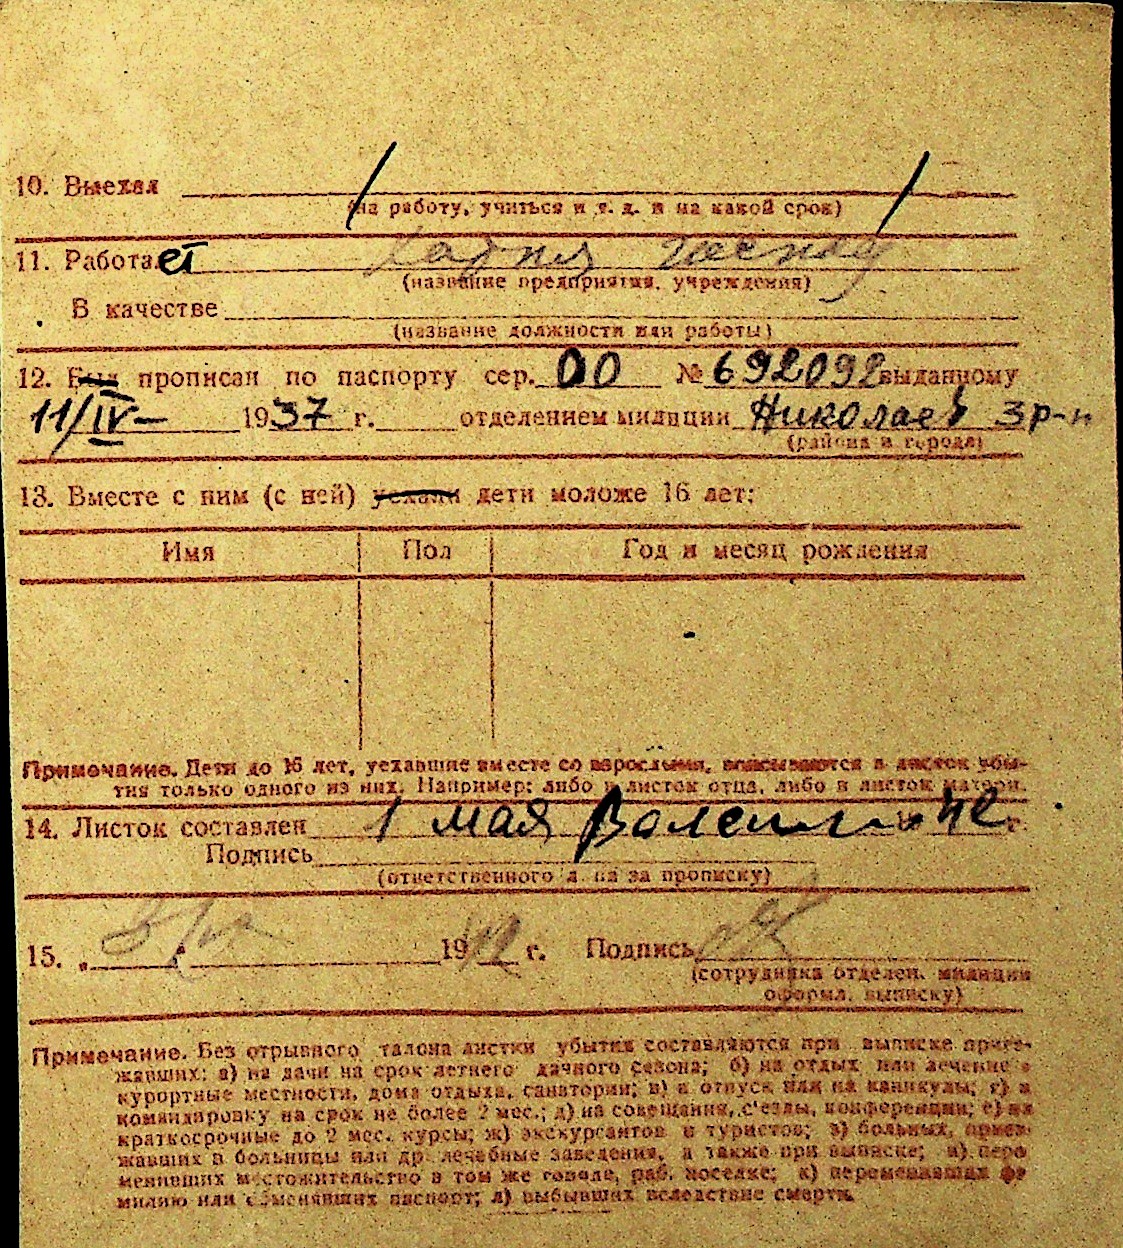 10. Выехал
(на работу, учиться и т. д. и на какой срок)
11. Работает
(название предприятия, учреждения)
В качестве
(название должности или работы)
12. Был прописан по паспорту сер. 00 № 692092 выданному
11/IV- 1937 г. отделением милиции Николаев 3 р-н
(района и города)
13. Вместе с ним (с ней) уехали дети моложе 16 лет:
Имя Пол Год и месяц рождения
Примечание. Дети до 16 лет, уехавшие вместе со взрослыми, вписываются в листок убы-
тия только одного из них. Например: либо в листок отца, либо в листок матери.
14. Листок составлен 1 мая г.
Подпись
(ответственного л на за прописку)
15. „ " 19 г. Подпись
(сотрудника отделен. милиции
оформл. выписку)
Примечание. Без отрывного талона листки убытия составляются при выписке приез-
жавших: а) на дачи на срок летнего дачного сезона; б) на отдых или лечение в
курортные местности, дома отдыха, санатории; в) в отпуск или на каникулы; г) в
командировку на срок не более 2 мес.; д) на совещания, с'езды, конференции; е) на
краткосрочные до 2 мес. курсы; ж) экскурсантов и туристов; з) больных, приез-
жавших в больницы или др. лечебные заведения, а также при выписке; и) пере
менивших местожительство в том же городе, раб. поселке; к) переменивших фа
милию или обменявших паспорт; л) выбывших вследствие смерти.